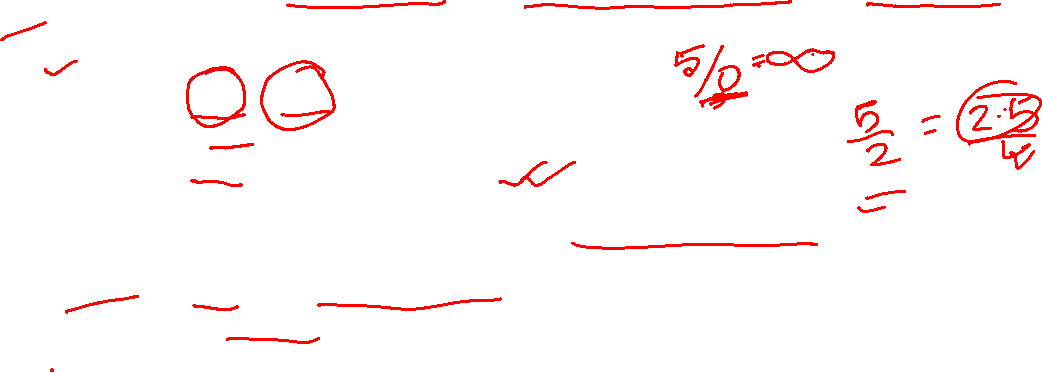 5/0 = ∞
5/2 = 2.5